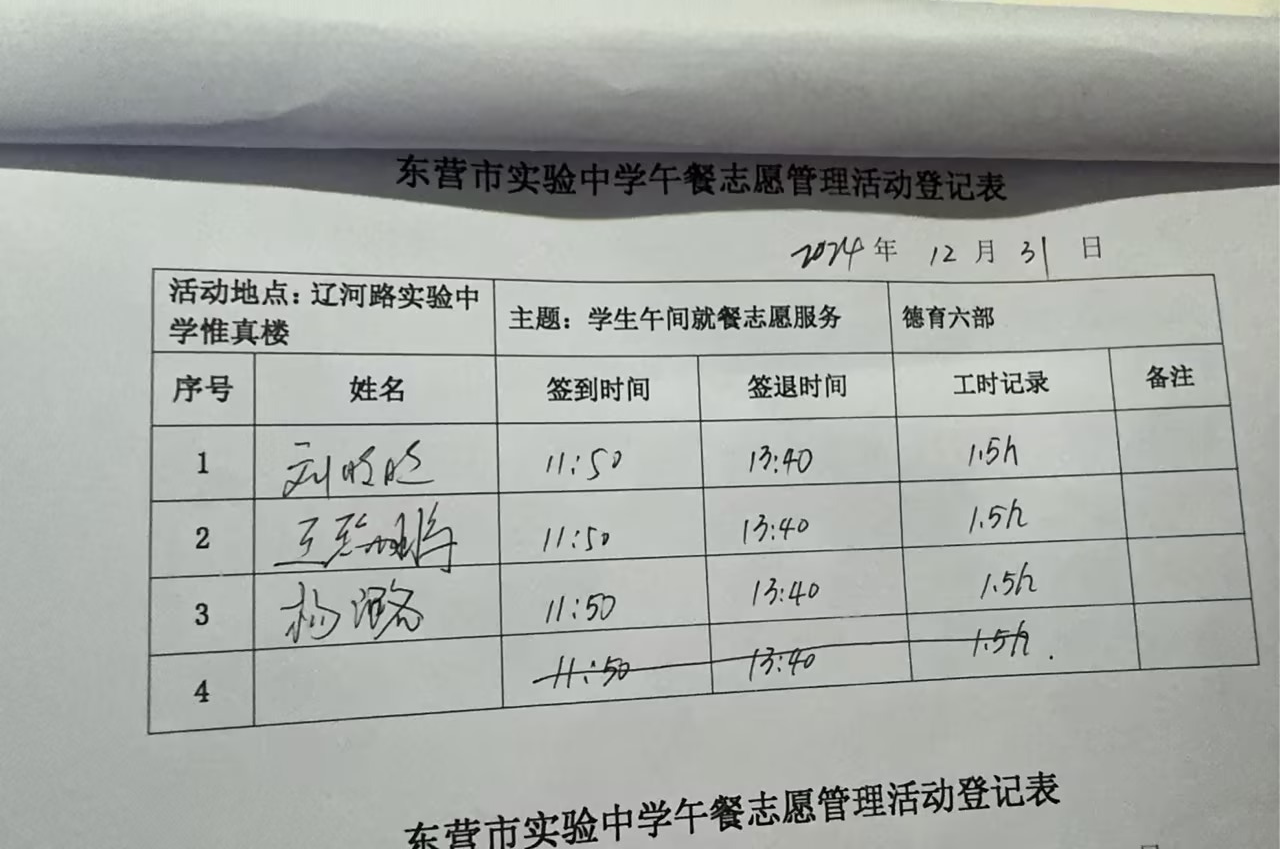 东营市实验中学午餐志愿管理活动登记表
2024年 12月 31日
活动地点：辽河路实验中学惟真楼 主题：学生午间就餐志愿服务 德育六部
序号 姓名 签到时间 签退时间 工时记录 备注
1 刘 11:50 13:40 1.5h
2 王 11:50 13:40 1.5h
3 杨璐 11:50 13:40 1.5h
4 11:50 13:40 1.5h.
东营市实验中学午餐志愿管理活动登记表
日